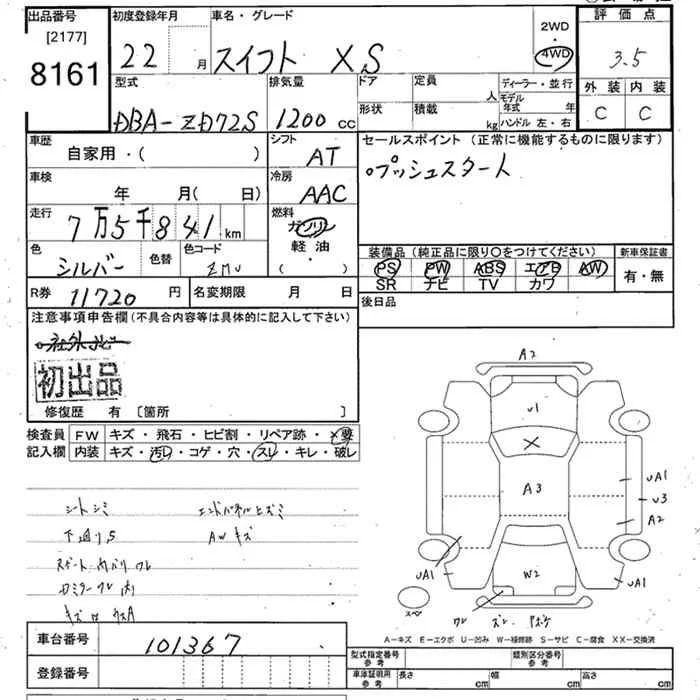 出品番号
[2177]
8161
初度登録年月
22 月
車名・グレード
スイフト XS
2WD
・
4WD
評価点
3.5
外装 内装
C C
型式
DBA-ZD72S
排気量
1200 cc
ドア
形状
定員 人
積載 kg
ディーラー・並行
モデル年式 年
ハンドル 左・右
車歴
自家用・( )
シフト
AT
セールスポイント（正常に機能するものに限ります）
プッシュスタート
車検
年 月( 日)
冷房
AAC
走行
7万5千841 km
燃料
ガソリン
軽油
( )
色
シルバー
色替
色コード
装備品（純正品に限り○をつけてください）
PS PW ABS エアB AW
SR ナビ TV カワ
新車保証書
有・無
R券 11720 円
名変期限 月 日
後日品
注意事項申告欄（不具合内容等は具体的に記入して下さい）
初出品
修復歴 有 [箇所 ]
検査員
記入欄
FW キズ・飛石・ヒビ割・リペア跡・×要
内装 キズ・汚レ・コゲ・穴・スレ・キレ・破レ
シートシミ
エンドパネルヒズミ
AWキズ
A2
U1
X
A3
UA1
U3
A2
UA1
W2
UA1
スペア
A-キズ E-エクボ U-凹み W-補修跡 S-サビ C-腐食 XX-交換済
車台番号
101367
登録番号
型式指定番号
参考
類別区分番号
参考
車庫証明用
参考
長さ cm
幅 cm
高さ cm